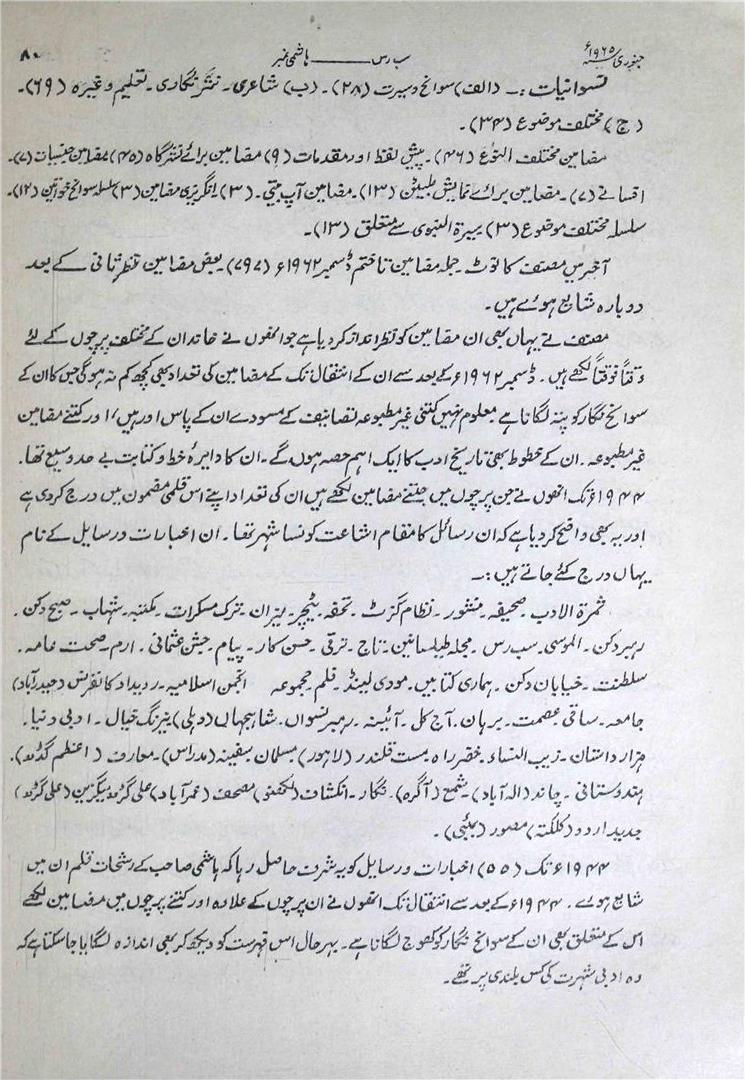 جنوری ۱۹۶۵ء سب رس ـــــ ہاشمی نمبر ۸۰
نسوانیات :۔ (الف) سوانح و سیرت (۲۸)۔ (ب) شاعری۔ نثر نگاری۔ تعلیم وغیرہ (۶۹)۔
(ج) مختلف موضوع (۳۴)۔
مضامین مختلف النوع (۴۶)۔ پیش لفظ اور مقدمات (۹) مضامین برائے نشرگاہ (۴۵) مضامین جنسیات (۷)۔
افسانے (۷)۔ مضامین برائے نمایش طبلیٹن (۱۳)۔ مضامین آپ بیتی۔ (۳) انگریزی مضامین (۳) سلسلہ سوانح خواتین (۱۲)۔
سلسلہ مختلف موضوع (۳) سیرۃ النبوی سے متعلق (۱۳)۔
آخر میں مصنف کا نوٹ۔ جملہ مضامین تا ختم ڈسمبر ۱۹۶۲ء (۷۹۷)۔ بعض مضامین نظر ثانی کے بعد
دوبارہ شایع ہوئے ہیں۔
مصنف نے یہاں بھی ان مضامین کو نظر انداز کر دیا ہے جو انھوں نے خاندان کے مختلف پرچوں کے لئے
وقتاً فوقتاً لکھے ہیں۔ ڈسمبر ۱۹۶۲ء کے بعد سے ان کے انتقال تک کے مضامین کی تعداد بھی کچھ کم نہ ہوگی جس کا ان کے
سوانح نگار کو پتہ لگانا ہے۔ معلوم نہیں کتنی غیر مطبوعہ تصانیف کے مسودے ان کے پاس اور ہیں، اور کتنے مضامین
غیر مطبوعہ۔ ان کے خطوط بھی تاریخ ادب کا ایک اہم حصہ ہوں گے۔ ان کا دایرۂ خط و کتابت بے حد وسیع تھا۔
۱۹۴۴ء تک انھوں نے جن پرچوں میں جتنے مضامین لکھے ہیں ان کی تعداد اپنے اس قلمی مضمون میں درج کر دی ہے
اور یہ بھی واضح کر دیا ہے کہ ان رسائل کا مقام اشاعت کونسا شہر تھا۔ ان اخبارات و رسایل کے نام
یہاں درج کئے جاتے ہیں :۔
ثمرۃ الادب۔ صحیفہ۔ منشور۔ نظام گزٹ۔ تحفہ۔ ٹیچر۔ میزان۔ ترک مسکرات۔ مکتبہ۔ شہاب۔ صبح دکن۔
رہبر دکن۔ الموسی۔ سب رس۔ مجلہ طیلسانین۔ تاج۔ ترقی۔ حسن کار۔ پیام۔ جشن عثمانی۔ ارم۔ صحت عامہ۔
سلطنت۔ خیابان دکن۔ ہماری کتابیں۔ مودی لینڈ۔ فلم۔ مجموعہ انجمن اسلامیہ۔ رویداد کانفرنس (حیدرآباد)
جامعہ۔ ساقی۔ عصمت۔ برہان۔ آج کل۔ آئینہ۔ رہبر نسواں۔ شاہجہاں (دہلی) نیرنگ خیال۔ ادبی دنیا۔
ہزار داستان۔ زیب النساء۔ خضر راہ۔ مست قلندر (لاہور) مسلمان۔ سفینہ (مدراس)۔ معارف (اعظم گڈھ)۔
ہندوستانی۔ چاند (الہ آباد)۔ شمع (آگرہ)۔ نگار۔ انکشاف (لکھنؤ) مصحف (عمرآباد) علی گڑھ میگزین (علی گڑھ)
جدید اردو (کلکتہ) مصور (بمبئی)۔
۱۹۴۴ء تک (۵۵) اخبارات و رسایل کو یہ شرف حاصل رہا کہ ہاشمی صاحب کے رشحات قلم ان میں
شایع ہوئے۔ ۱۹۴۴ء کے بعد سے انتقال تک انھوں نے ان پرچوں کے علاوہ اور کتنے پرچوں میں مضامین لکھے
اس کے متعلق بھی ان کے سوانح نگار کو کھوج لگانا ہے۔ بہر حال اس فہرست کو دیکھ کر بھی اندازہ لگایا جا سکتا ہے کہ
وہ ادبی شہرت کی کس بلندی پر تھے۔